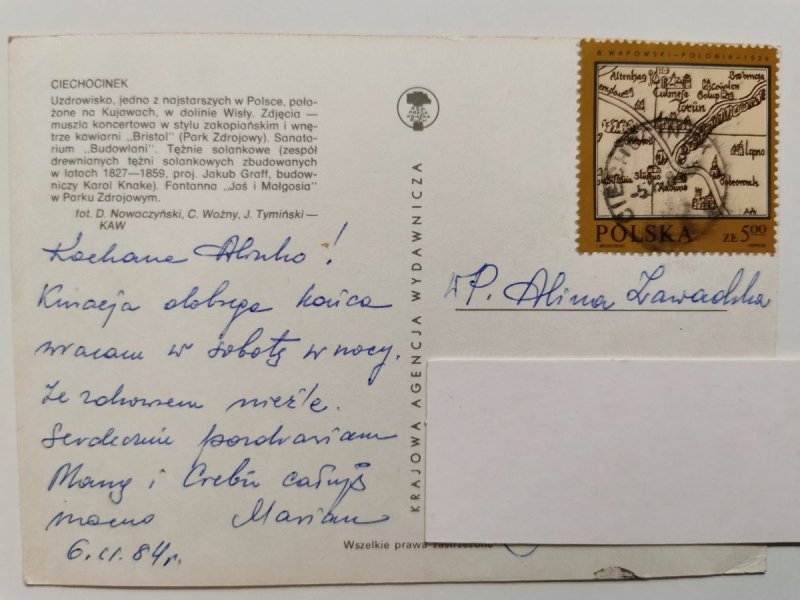 CIECHOCINEK
Uzdrowisko, jedno z najstarszych w Polsce, poło-
żone na Kujawach, w dolinie Wisły. Zdjęcia —
muszla koncertowa w stylu zakopiańskim i wnę-
trze kawiarni „Bristol" (Park Zdrojowy). Sanato-
rium „Budowlani". Tężnie solankowe (zespół
drewnianych tężni solankowych zbudowanych
w latach 1827—1859, proj. Jakub Graff, budow-
niczy Karol Knake). Fontanna „Jaś i Małgosia"
w Parku Zdrojowym.
fot. D. Nowaczyński, C. Woźny, J. Tymiński —
KAW
Kochana Alinko!
Kuracja dobiega końca
wracam w sobotę w nocy.
Ze zdrowiem nieźle.
Serdecznie pozdrawiam
Mamę i całuję
mocno Marian
84 r.
KRAJOWA AGENCJA WYDAWNICZA
Wszelkie prawa zastrzeżone
B WAPOWSKI – POLONIA – 1526
Culmense
torun
POLSKA ZŁ 5,00
WP. Alina Zawadzka